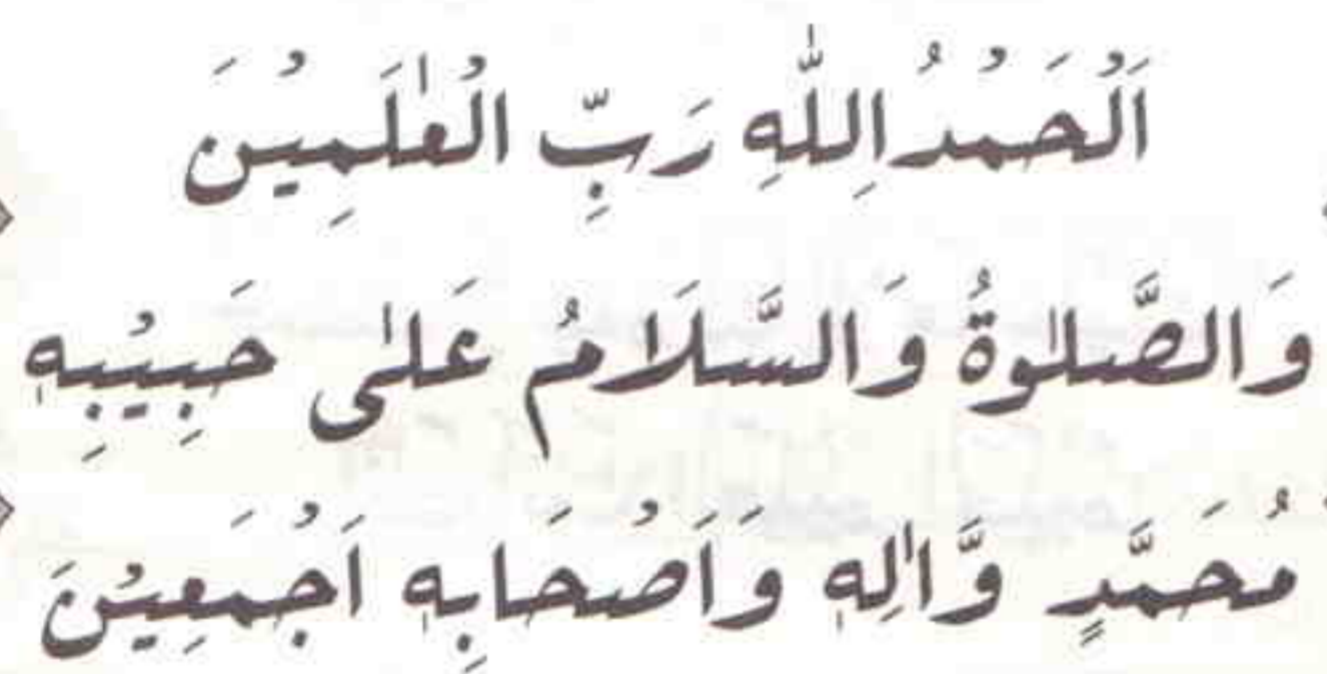 اَلْحَمْدُ اِللّٰهِ رَبِّ الْعٰلَمِيْنَ
وَالصَّلٰوةُ وَالسَّلَامُ عَلٰى حَبِيْبِهٖ
مُحَمَّدٍ وَّاٰلِهٖ وَاَصْحَابِهٖ اَجْمَعِيْنَ